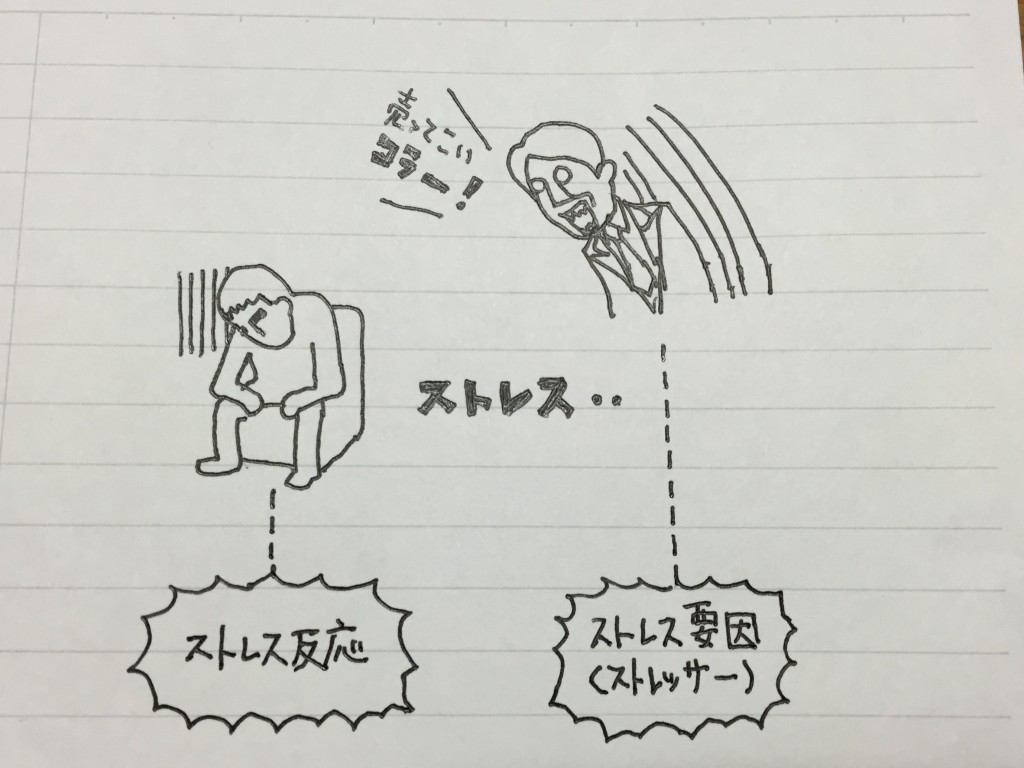 売ってこい
コラー!
ストレス・・
ストレス反応
ストレス要因
(ストレッサー)